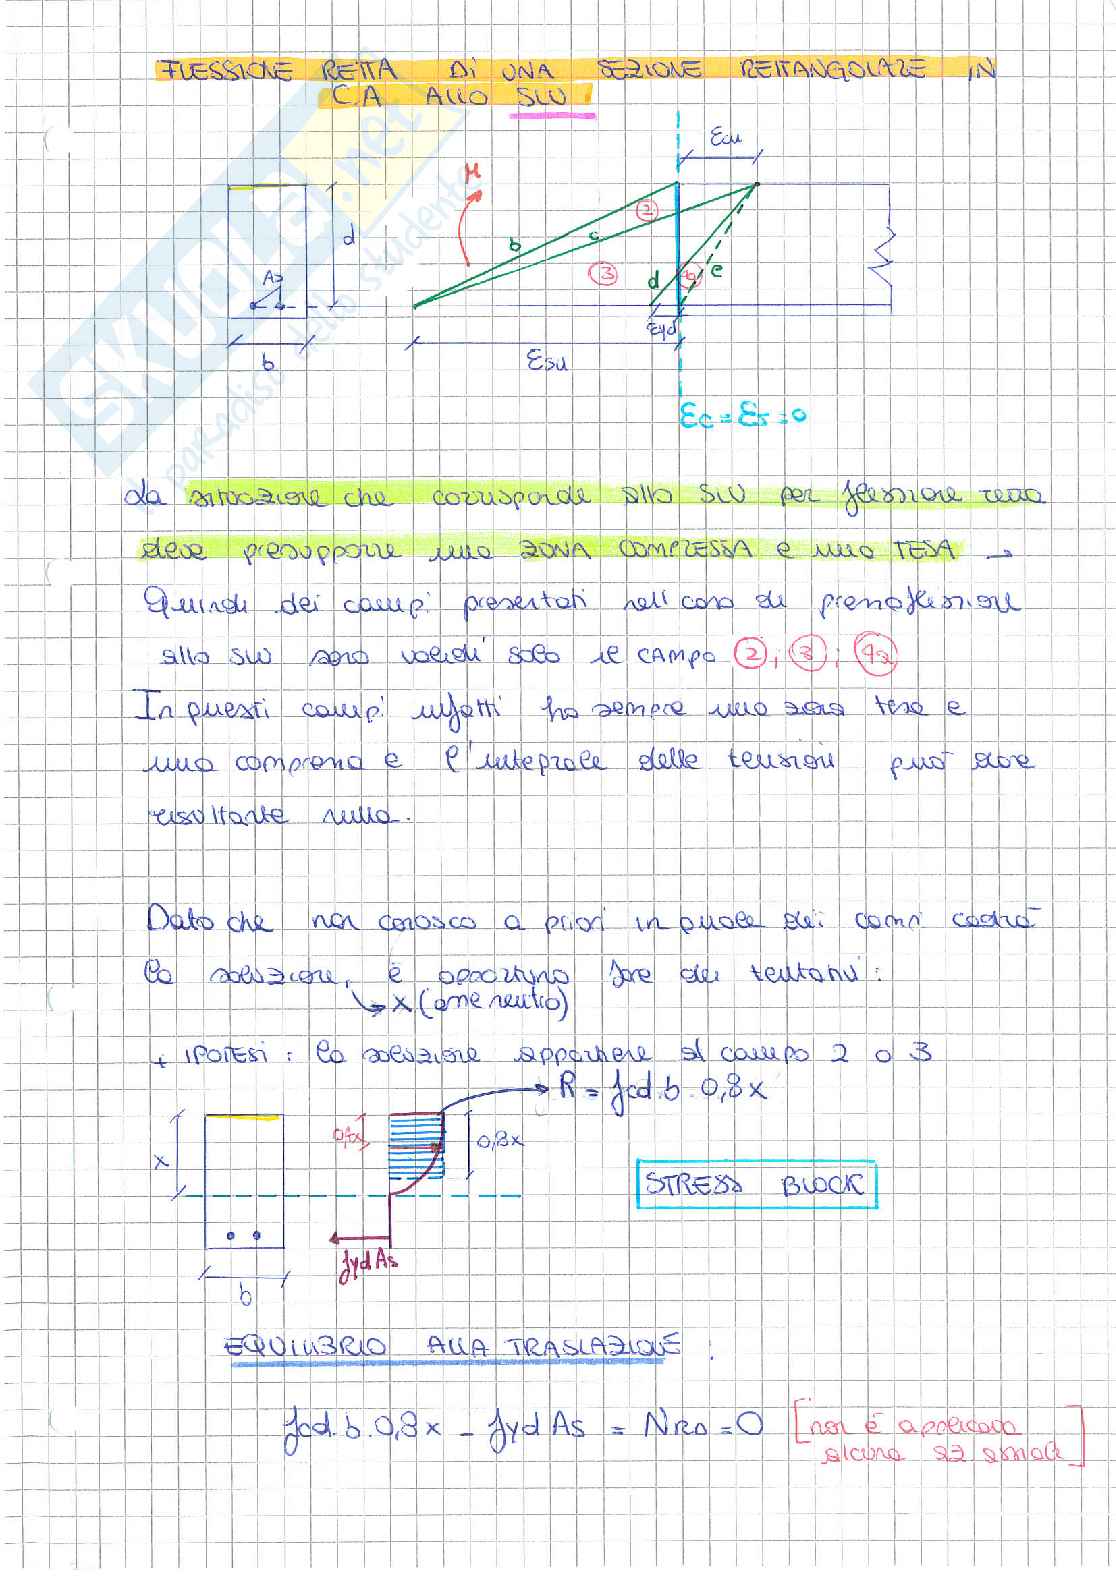 FLESSIONE RETTA DI UNA SEZIONE RETTANGOLARE IN
C.A ALLO SLU
SKUOLA.net
paradiso dello studente
εcu
M
d
b
c
2
3
d
4a
e
As
εyd
b
εsu
εc = εs = 0
La situazione che corrisponde allo SLU per flessione retta
deve presupporre una ZONA COMPRESSA e una TESA →
Quindi dei campi presentati nell'caso di pressoflessione
allo SLU sono validi solo il CAMPO 2, 3, 4a
In questi campi infatti ho sempre una zona tesa e
una compressa e l'integrale delle tensioni può dare
risultante nulla.
Dato che non conosco a priori in quale dei campi cadrà
la soluzione, è opportuno fare dei tentativi:
↳ x (asse neutro)
+ IPOTESI: la soluzione appartiene al campo 2 o 3
R = fcd · b · 0,8x
0,4x
0,8x
x
STRESS BLOCK
fyd As
b
EQUILIBRIO ALLA TRASLAZIONE:
fcd · b · 0,8x - fyd As = NRD = 0 [non è applicata
alcuna az assiale]